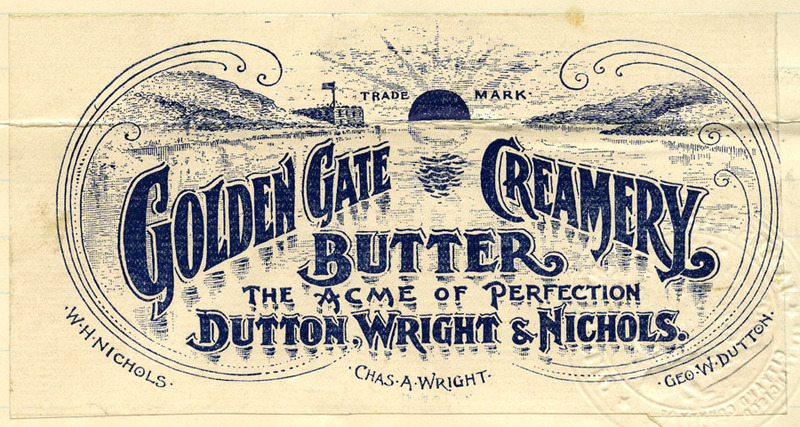 TRADE MARK.
GOLDEN GATE CREAMERY
BUTTER
THE ACME OF PERFECTION
DUTTON, WRIGHT & NICHOLS.
·W·H·NICHOLS·
CHAS·A·WRIGHT·
·GEO·W·DUTTON·